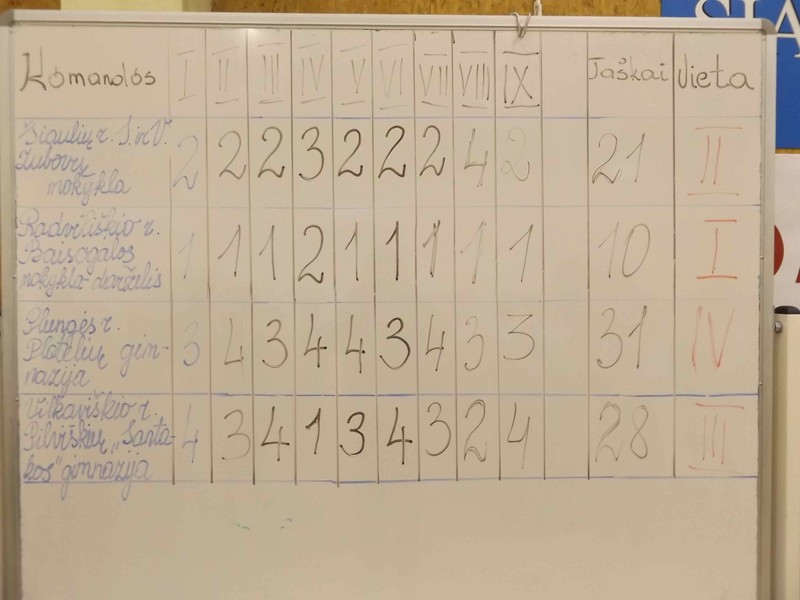 SIA
Komandos I II III IV V VI VII VIII IX Taškai Vieta
Šiaulių r. S. ir V.
Zubovų
mokykla
2 2 2 3 2 2 2 4 2 21 II
Radviliškio r.
Baisogalos
mokykla-darželis
1 1 1 2 1 1 1 1 1 10 I
Plungės r.
Platelių gim-
nazija
3 4 3 4 4 3 4 3 3 31 IV
Vilkaviškio r.
Pilviškių „Santa-
kos" gimnazija
4 3 4 1 3 4 3 2 4 28 III